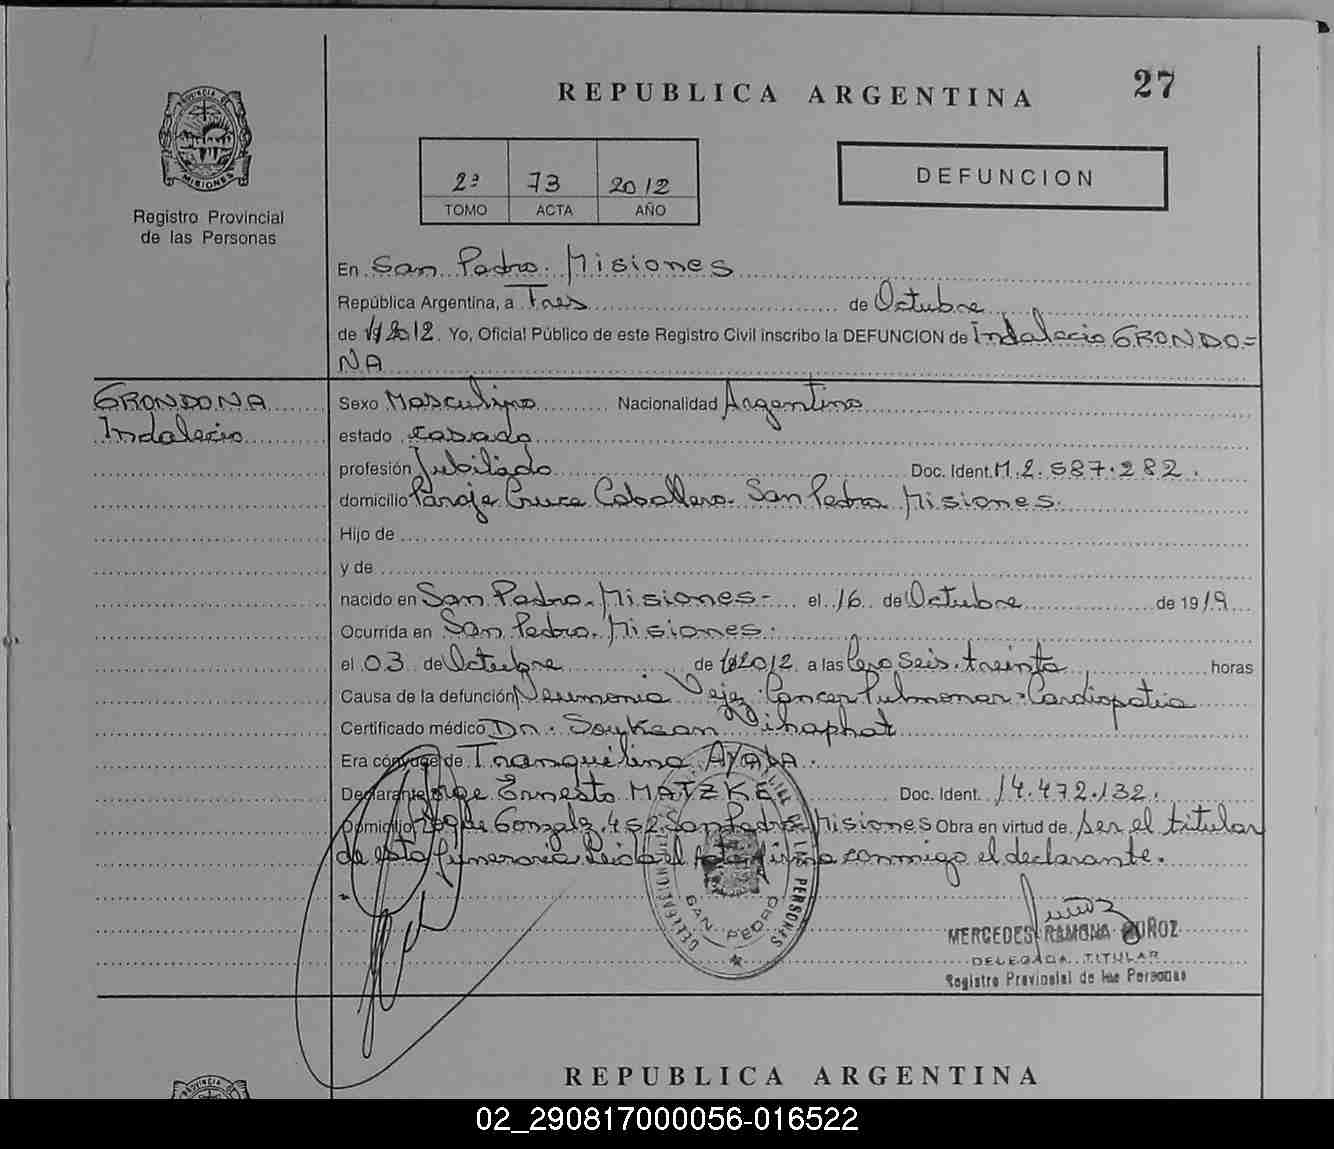 27
REPUBLICA ARGENTINA
PROVINCIA DE
MISIONES
Registro Provincial
de las Personas
2ª 73 2012
TOMO ACTA AÑO
DEFUNCION
En San Pedro. Misiones
República Argentina, a Tres de Octubre
de 2012. Yo, Oficial Público de este Registro Civil inscribo la DEFUNCION de Indalecio GRONDO=
NA
GRONDONA
Indalecio
Sexo Masculino Nacionalidad Argentino
estado casado
profesión Jubilado Doc. Ident. M. 2.587.282.
domicilio Paraje Cruce Caballero. San Pedro Misiones.
Hijo de
y de
nacido en San Pedro. Misiones- el 16 de Octubre de 1919
Ocurrida en San Pedro. Misiones.
el 03 de Octubre de 2012 a las Cero Seis. treinta horas
Causa de la defunción Neumonia Vejez. Cancer Pulmonar. Cardiopatia
Certificado médico Dr. Soukaan
Era cónyuge de Tranquilina AYALA.
Declarante Jorge Ernesto MATZKE Doc. Ident. 14.472.132.
Domicilio Roque Gonzalz. 452. San Pedro Misiones Obra en virtud de ser el titular
de esta funeraria. Leida el acta firma conmigo el declarante.
DELEGACION DE LAS PERSONAS
SAN PEDRO
MERCEDES RAMONA MUÑOZ
DELEGADA TITULAR
Registro Provincial de las Personas
REPUBLICA ARGENTINA
PROVINCIA DE
02_290817000056-016522